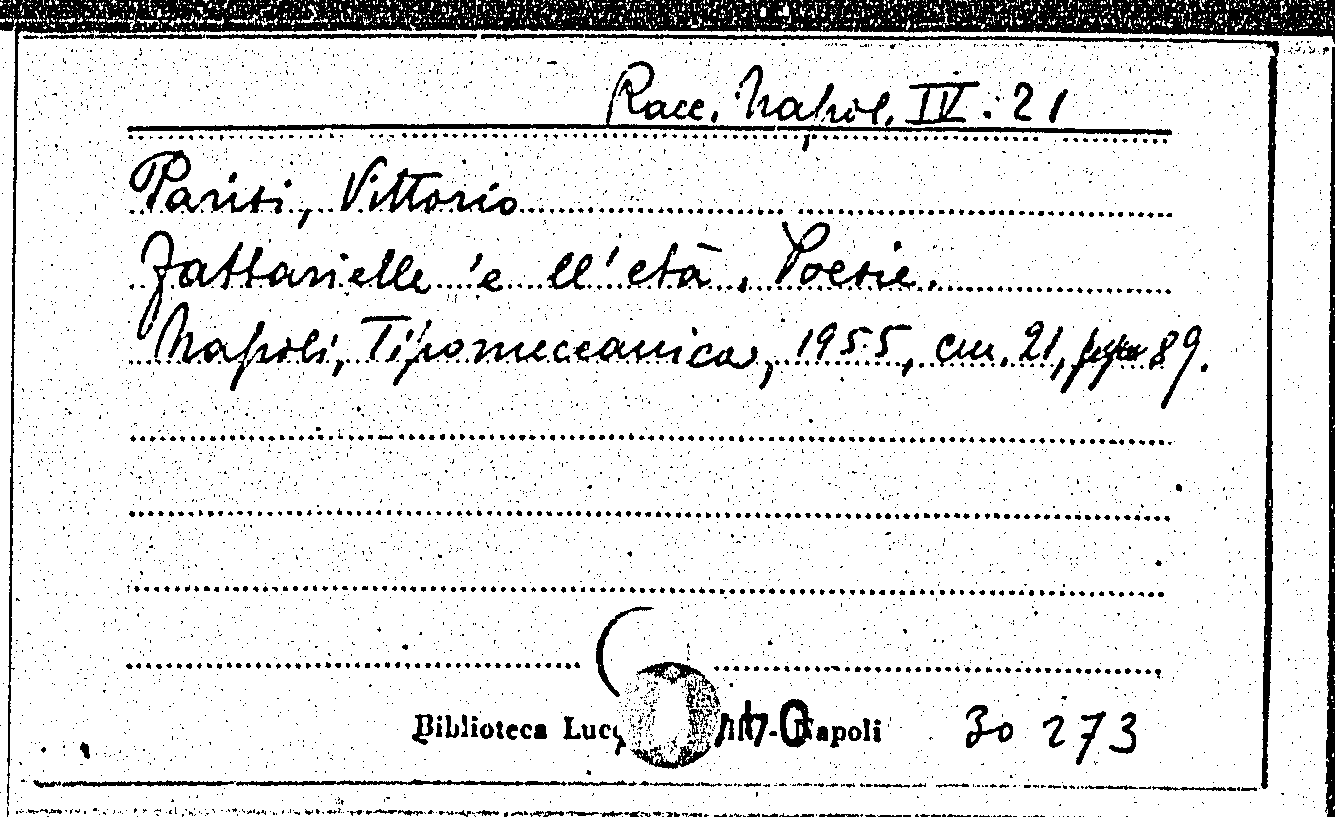 Racc. Napol. IV. 21
Parisi, Vittorio
Fattarielle 'e ll' età. Poesie.
Napoli, Tipomeccanica, 1955, cm. 21, 89.
Biblioteca Lucc - Napoli 30 273